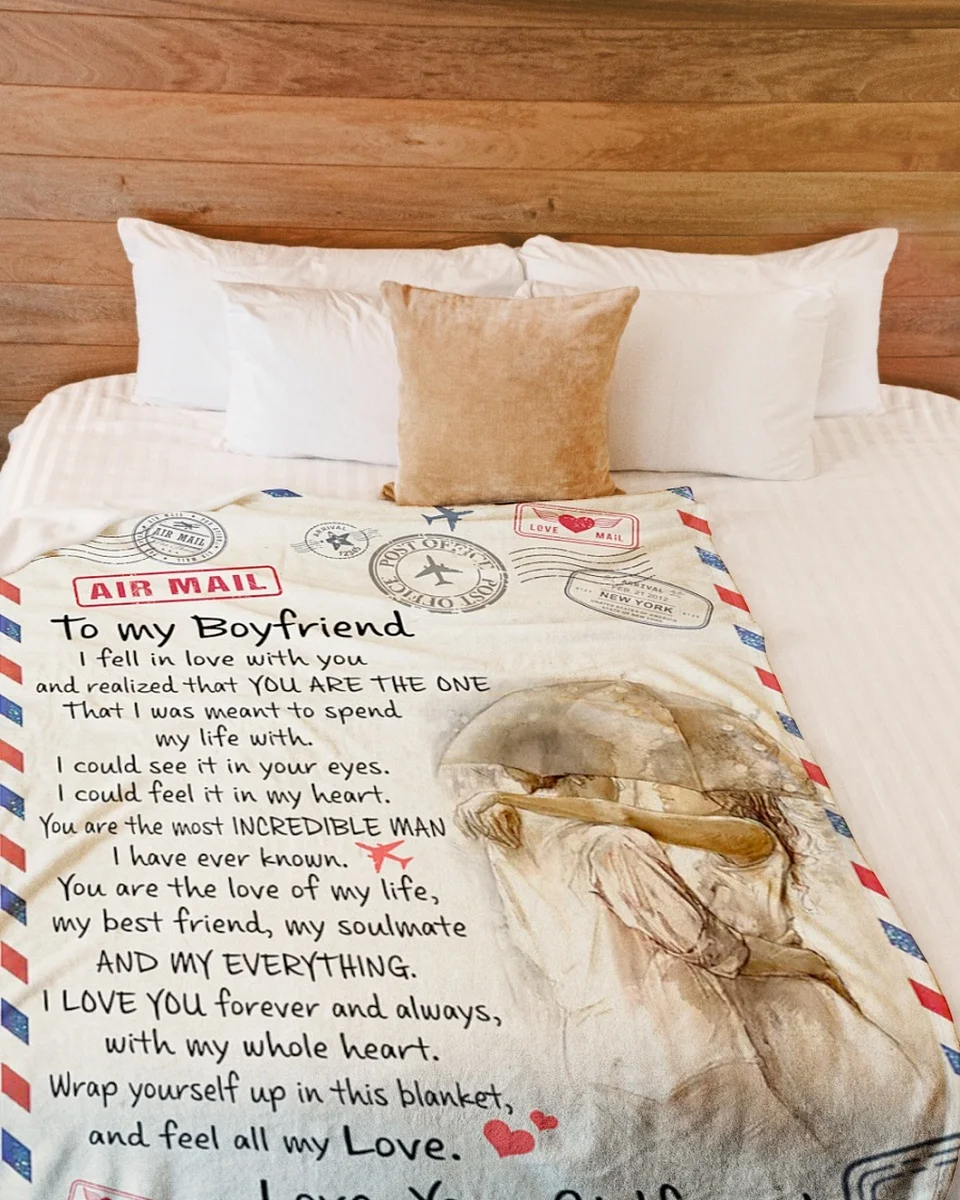 AIR MAIL
ARRIVAL
POST OFFICE
POST OFFICE
LOVE MAIL
ARRIVAL
FEB. 21 2012
NEW YORK
UNITED STATES OF AMERICA
STATE OF NEW YORK
AIR MAIL
To my Boyfriend
I fell in love with you
and realized that YOU ARE THE ONE
That I was meant to spend
my life with.
I could see it in your eyes.
I could feel it in my heart.
You are the most INCREDIBLE MAN
I have ever known.
You are the love of my life,
my best friend, my soulmate
AND MY EVERYTHING.
I LOVE YOU forever and always,
with my whole heart.
Wrap yourself up in this blanket,
and feel all my Love.